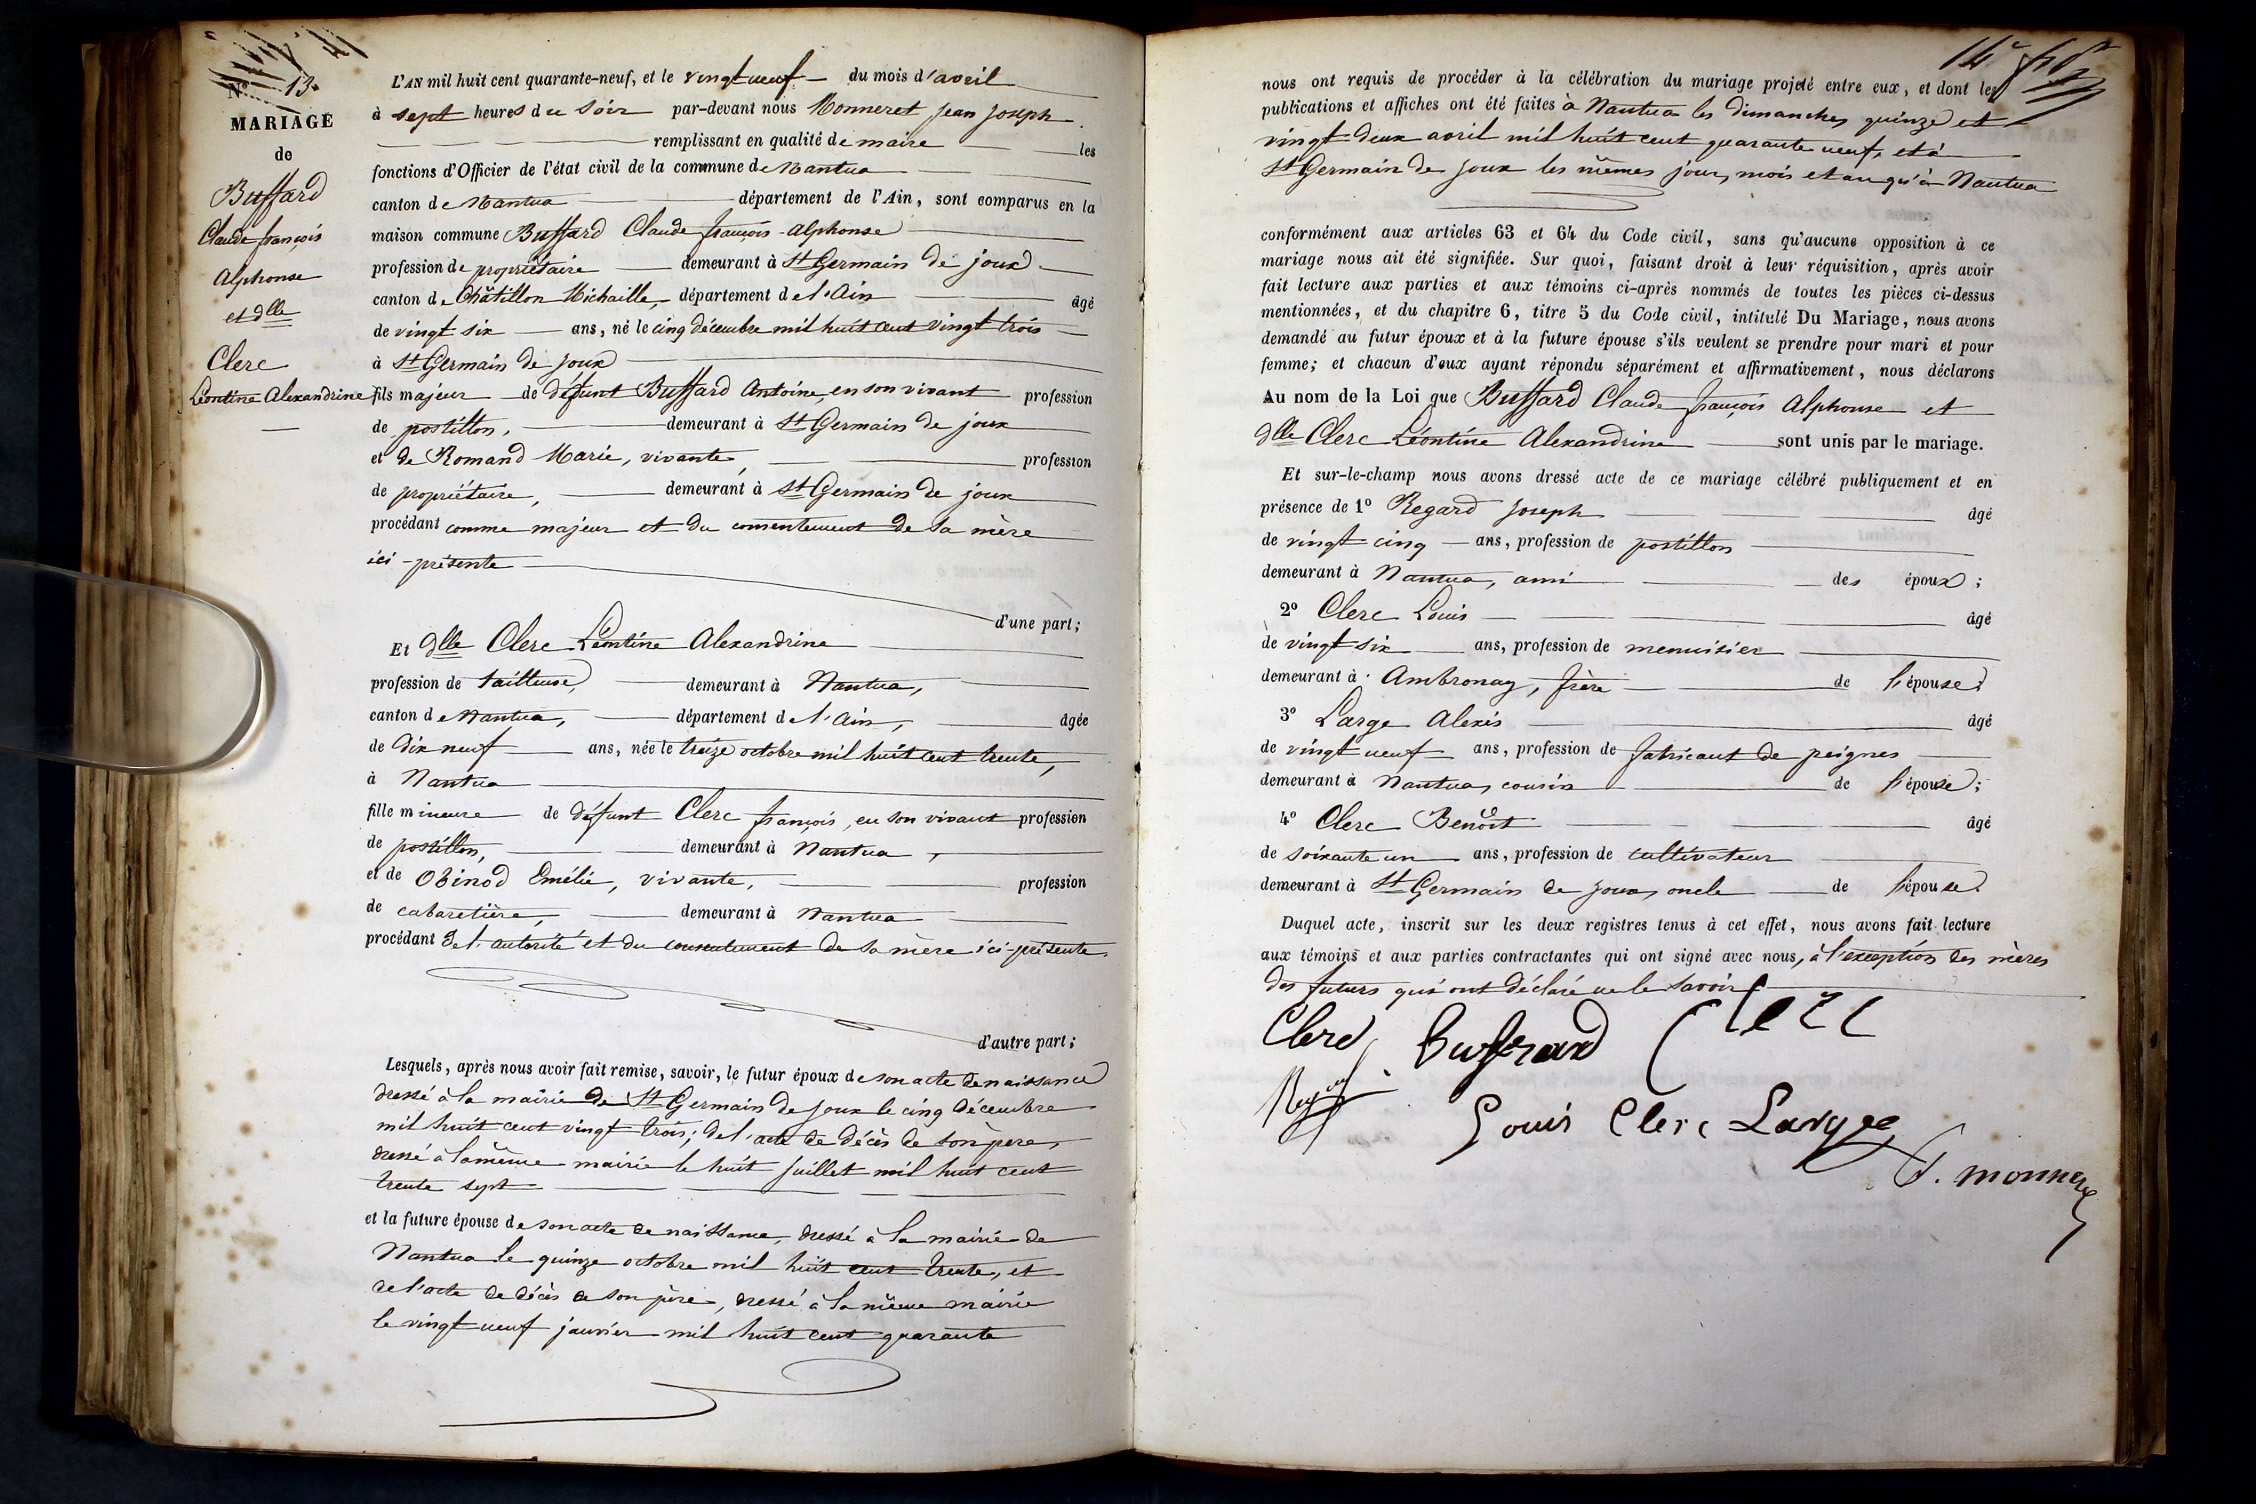 N° 13.
MARIAGE
de
Buffard
Claude françois
Alphonse
et dlle
Clerc
Léontine Alexandrine
L'AN mil huit cent quarante-neuf, et le vingt neuf du mois d'avril
à sept heures du soir par-devant nous Monneret jean joseph
remplissant en qualité de maire les
fonctions d'Officier de l'état civil de la commune de Nantua
canton de Nantua département de l'Ain, sont comparus en la
maison commune Buffard Claude françois-Alphonse
profession de propriétaire demeurant à St Germain de joux
canton de Châtillon Michaille, département de l'Ain âgé
de vingt six ans, né le cinq décembre mil huit cent vingt trois
à St Germain de joux
fils majeur de défunt Buffard Antoine, en son vivant profession
de postillon, demeurant à St Germain de joux
et de Romand Marie, vivante, profession
de propriétaire, demeurant à St Germain de joux
procédant comme majeur et du consentement de sa mère
ici-présente
d'une part;
Et dlle Clerc Léontine Alexandrine
profession de tailleuse, demeurant à Nantua,
canton de Nantua, département de l'Ain, âgée
de dix neuf ans, née le treize octobre mil huit cent trente,
à Nantua
fille mineure de défunt Clerc françois, en son vivant profession
de postillon, demeurant à Nantua,
et de Obinod Emélie, vivante, profession
de cabaretière, demeurant à Nantua
procédant de l'autorité et du consentement de sa mère ici-présente.
d'autre part;
Lesquels, après nous avoir fait remise, savoir, le futur époux de son acte de naissance
dressé à la mairie de St Germain de joux le cinq décembre
mil huit cent vingt trois; de l'acte de décès de son père,
dressé à la même mairie le huit juillet mil huit cent
trente sept
et la future épouse de son acte de naissance, dressé à la mairie de
Nantua le quinze octobre mil huit cent trente, et
de l'acte de décès de son père, dressé à la même mairie
le vingt neuf janvier mil huit cent quarante
14e
nous ont requis de procéder à la célébration du mariage projeté entre eux, et dont les
publications et affiches ont été faites à Nantua les dimanches quinze et
vingt deux avril mil huit cent quarante neuf, et à
St Germain de joux les mêmes jour, mois et an qu'à Nantua
conformément aux articles 63 et 64 du Code civil, sans qu'aucune opposition à ce
mariage nous ait été signifiée. Sur quoi, faisant droit à leur réquisition, après avoir
fait lecture aux parties et aux témoins ci-après nommés de toutes les pièces ci-dessus
mentionnées, et du chapitre 6, titre 5 du Code civil, intitulé Du Mariage, nous avons
demandé au futur époux et à la future épouse s'ils veulent se prendre pour mari et pour
femme; et chacun d'eux ayant répondu séparément et affirmativement, nous déclarons
Au nom de la Loi que Buffard Claude françois Alphonse et
dlle Clerc Léontine Alexandrine sont unis par le mariage.
Et sur-le-champ nous avons dressé acte de ce mariage célébré publiquement et en
présence de 1° Regard joseph âgé
de vingt cinq ans, profession de postillon
demeurant à Nantua, ami des époux;
2° Clerc Louis âgé
de vingt six ans, profession de menuisier
demeurant à Ambronay, frère de l'épouse;
3° Large Alexis âgé
de vingt neuf ans, profession de fabricant de peignes
demeurant à Nantua, cousin de l'épouse;
4° Clerc Benoit âgé
de soixante un ans, profession de cultivateur
demeurant à St Germain de joux, oncle de l'épouse.
Duquel acte, inscrit sur les deux registres tenus à cet effet, nous avons fait lecture
aux témoins et aux parties contractantes qui ont signé avec nous, à l'exception des mères
des futurs qui ont déclaré ne le savoir
Clerc Buffard Clerc
Regard
Louis Clerc Large
J. monneret